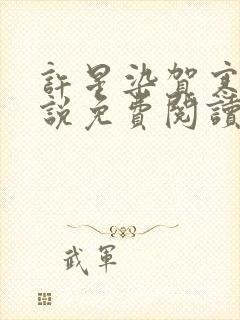 許星染賀寒
說免費閱讀
武軍